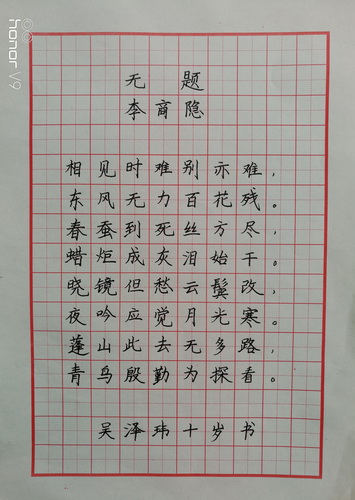 无题
李商隐
相见时难别亦难，
东风无力百花残。
春蚕到死丝方尽，
蜡炬成灰泪始干。
晓镜但愁云鬓改，
夜吟应觉月光寒。
蓬山此去无多路，
青鸟殷勤为探看。
吴泽玮十岁书
honor V9